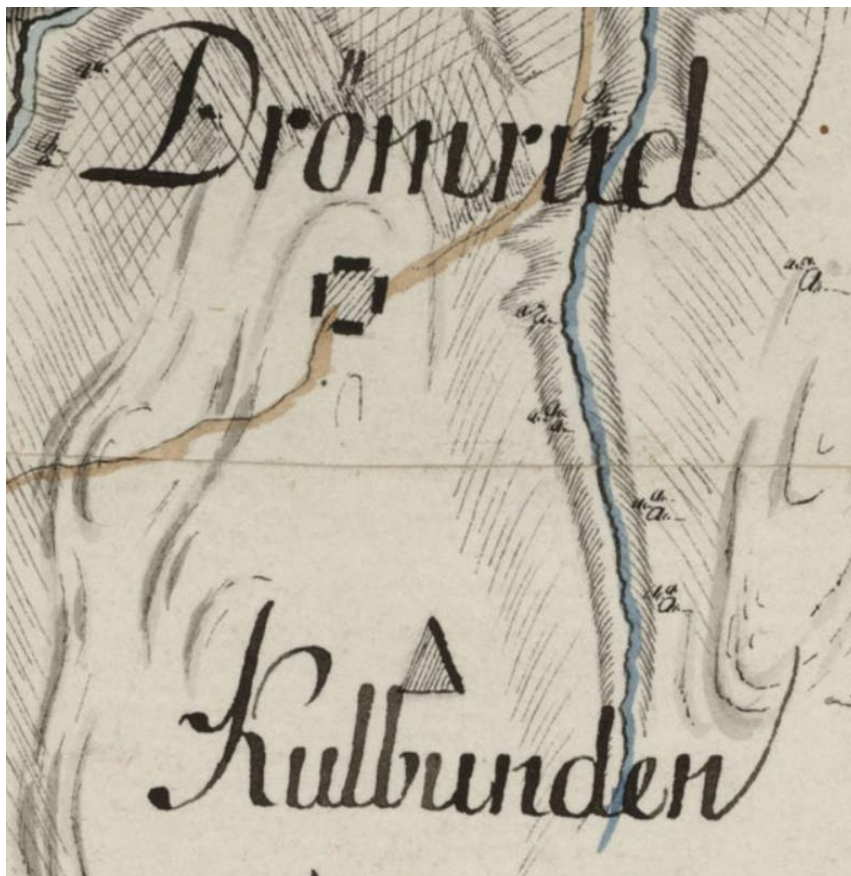 Drömrud
Kulbunden